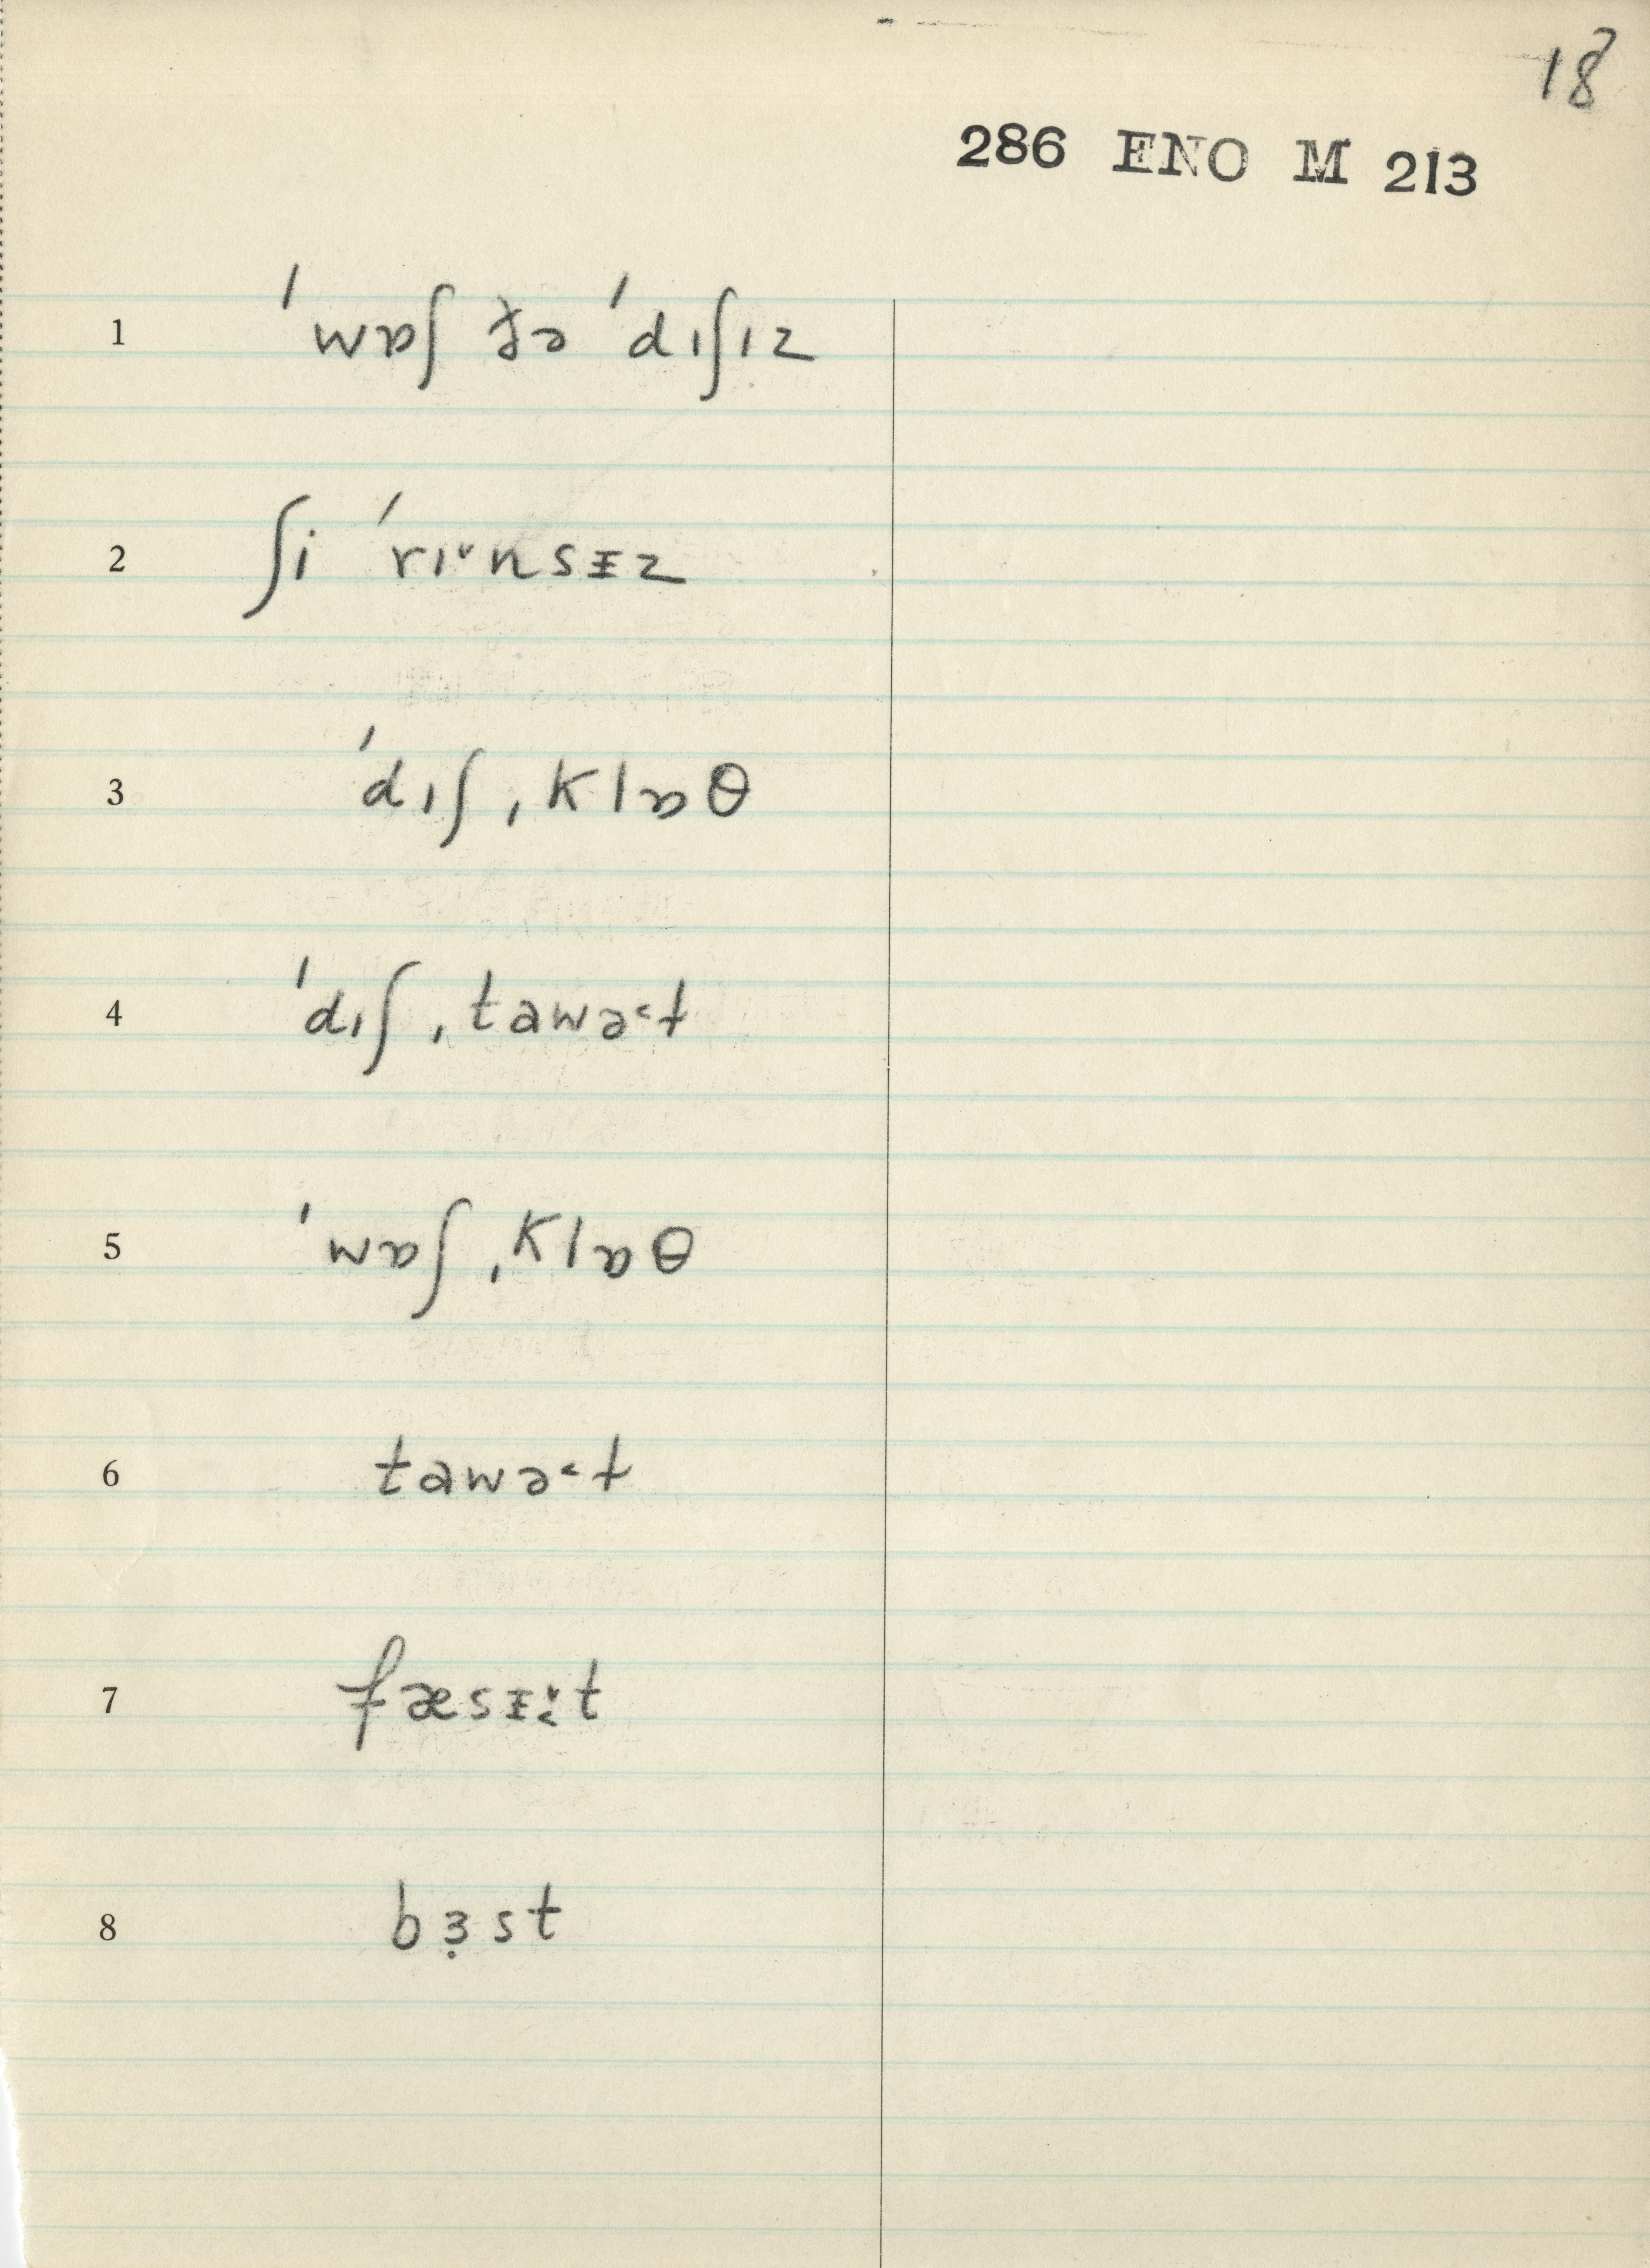 18
286 ENO M 213
1 ˈwɒʃ ðə ˈdɪʃɪz
2 ʃi ˈrɪ˅nsᵻz
3 ˈdɪʃˌklɒθ
4 ˈdɪʃˌtawə˂t
5 ˈwɒʃˌklɒθ
6 tawə˂t
7 fæsᵻ˅˂t
8 bɜ̣st